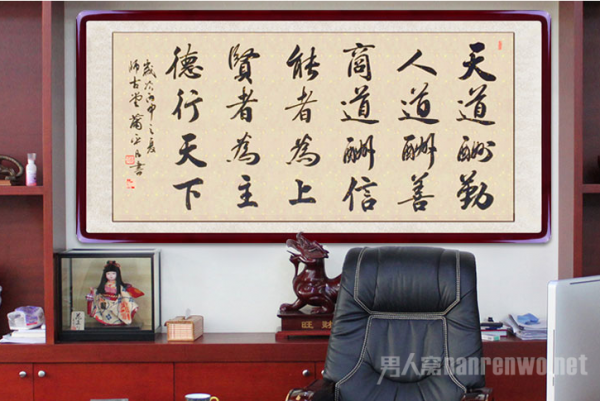 天道酬勤
人道酬善
商道酬信
能者為上
賢者為主
德行天下
歲次丙申之夏
師古堂
書
旺財
男人窝nanrenwo.net